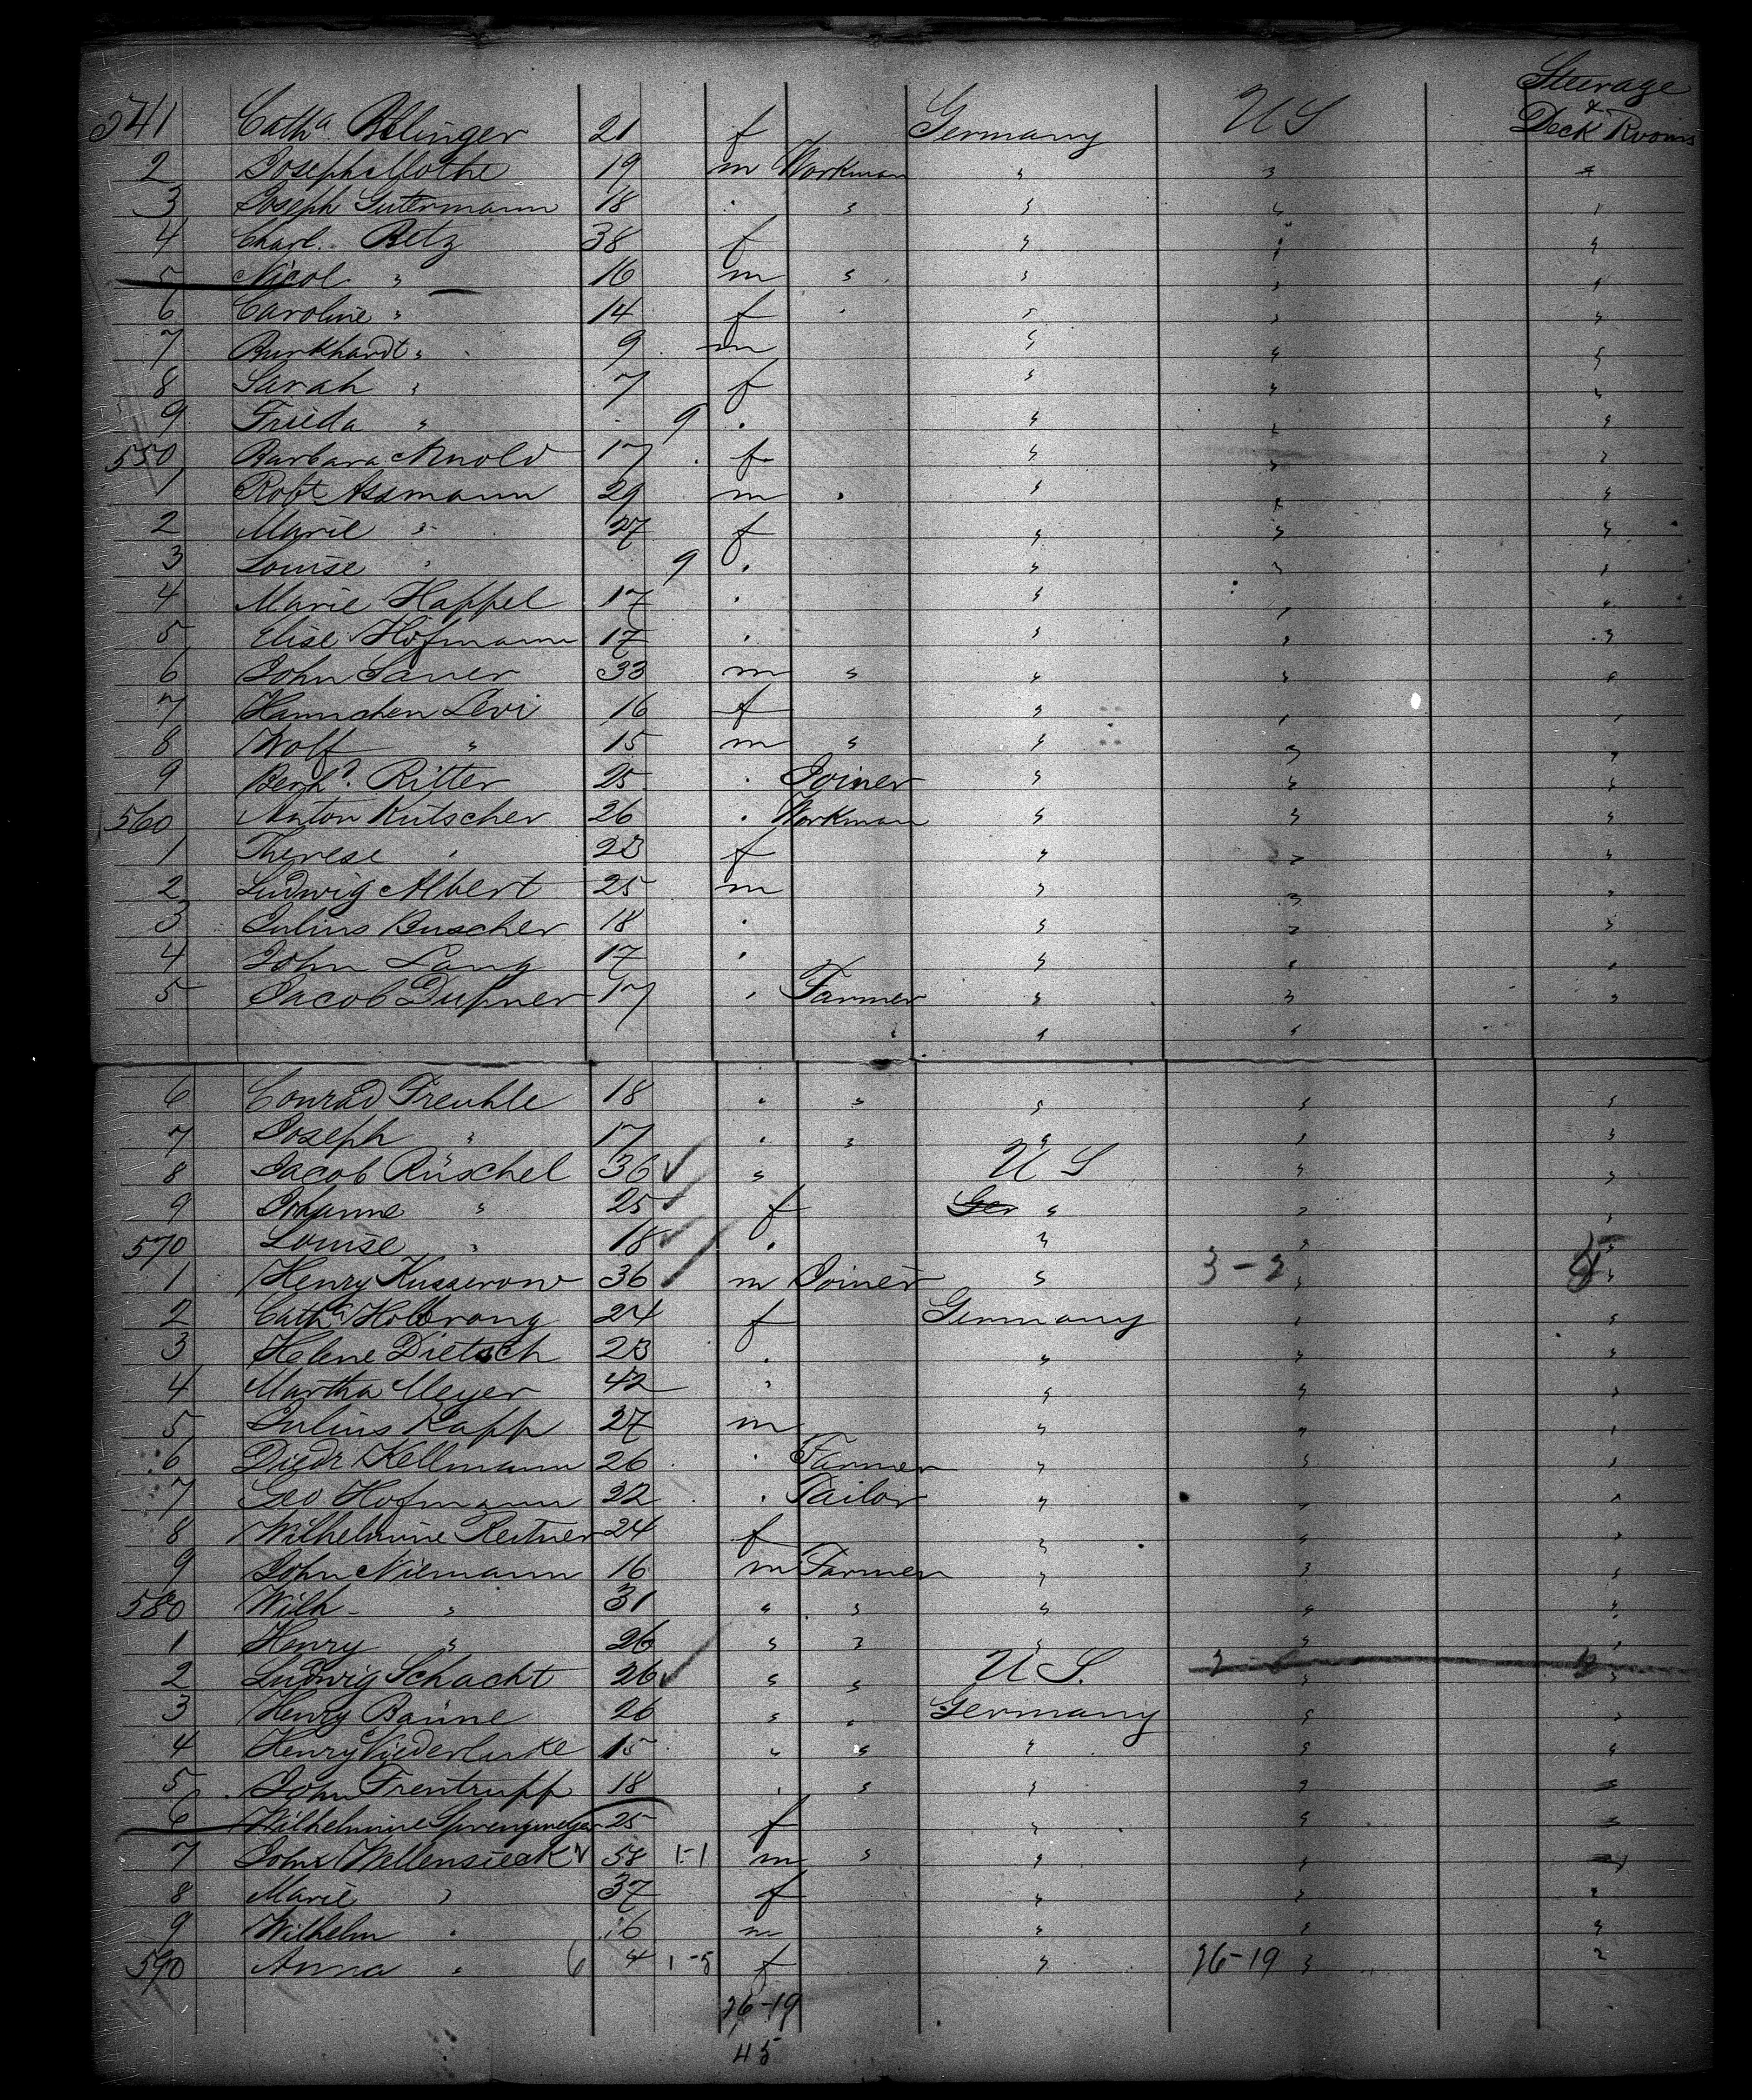 Steerage
&
541 Catha Bllinger 21 f Germany US Deck Rooms
2 Joseph Mothe 19 m Workman " " "
3 Joseph Gutermann 18 " " " " "
4 Charl. Betz 38 f " " "
5 Nicol " 16 m " " " "
6 Caroline " 14 f " " "
7 Burkhardt " 9 m " " "
8 Sarah " 7 f " " "
9 Frieda " 9 " " " "
550 Barbara Arnold 17 f " " "
1 Robt Assmann 29 m " " " "
2 Marie " 27 f " " "
3 Louise " 9 " " " "
4 Marie Happel 17 " " " "
5 Elise Hofmann 17 " " " "
6 John Sauer 33 m " " " "
7 Hannchen Levi 16 f " " "
8 Wolf " 15 m " " " "
9 Bernh. Ritter 25 " Joiner " " "
560 Anton Kutscher 26 " Workman " " "
1 Therese " 23 f " " "
2 Ludwig Albert 25 m " " "
3 Julius Buscher 18 " " " "
4 John Lang 17 " " " "
5 Jacob Dufner 17 " Farmer " " "
" " "
6 Conrad Freuhle 18 " " " " "
7 Joseph " 17 " " " " "
8 Jacob Rüschel 36 " U S " "
9 Johanne " 25 f Ger " " "
570 Louise " 18 " " " "
1 Henry Kusserow 36 m Joiner " 3-2 " "
2 Catha Hollrang 24 f Germany " "
3 Helene Dietsch 23 " " " "
4 Martha Meyer 42 " " " "
5 Julius Rapp 27 m " " "
6 Diedr Kellmann 26 " Farmer " " "
7 Geo Hofmann 22 " Tailor " " "
8 Wilhelmine Reitner 24 f " " "
9 John Niemann 16 m Farmer " " "
580 Wilh " 31 " " " " "
1 Henry " 26 " " " " "
2 Ludwig Schacht 26 " " U.S. " "
3 Henry Baune 26 " " Germany " "
4 Henry Niederluke 15 " " " " "
5 John Frentrupp 18 " " " " "
6 Wilhelmine Sprengmeyer 25 f " " "
7 John Wellensieck 58 1-1 m " " " "
8 Marie " 37 f " " "
9 Wilhelm " 16 m " " "
590 Anna " 6 4 f " 26-19 " "
26-19
45